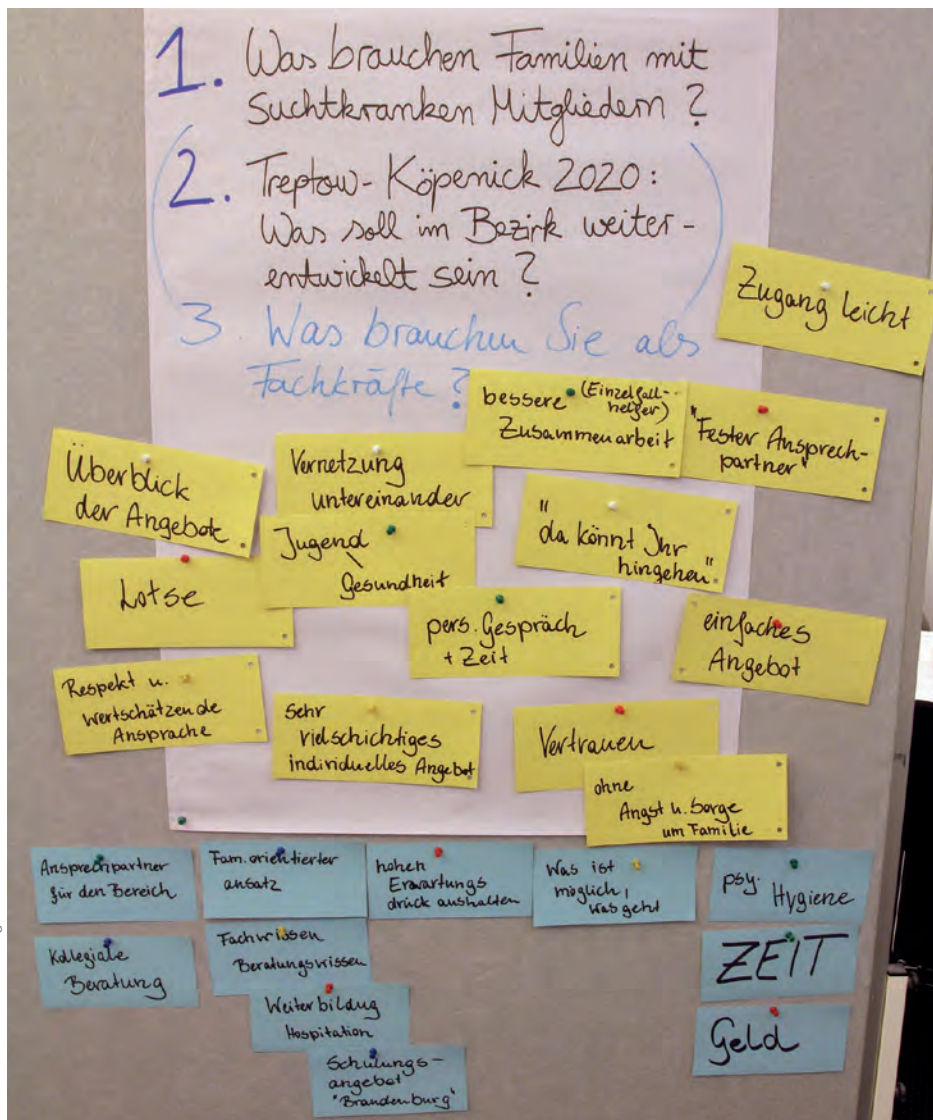 1. Was brauchen Familien mit
Suchtkranken Mitgliedern ?
2. Treptow-Köpenick 2020:
Was soll im Bezirk weiter-
entwickelt sein ?
3. Was brauchen Sie als
Fachkräfte ?
Zugang leicht
bessere (Einzelfall-
helfer)
Zusammenarbeit
"Fester Ansprech-
partner"
Überblick
der Angebote
Vernetzung
untereinander
Jugend
\
Gesundheit
"da könnt Ihr
hingehen"
Lotse
pers. Gespräch
+ Zeit
einfaches
Angebot
Respekt u.
wertschätzende
Ansprache
Sehr
vielschichtiges
individuelles Angebot
Vertrauen
ohne
Angst u. Sorge
um Familie
Ansprechpartner
für den Bereich
Fam.orientierter
ansatz
hohen
Erwartungs
druck aushalten
Was ist
möglich,
was geht
psy.
Hygiene
Kollegiale
Beratung
Fachwissen
Beratungswissen
ZEIT
Weiterbildung
Hospitation
Geld
Schulungs-
angebot
"Brandenburg"